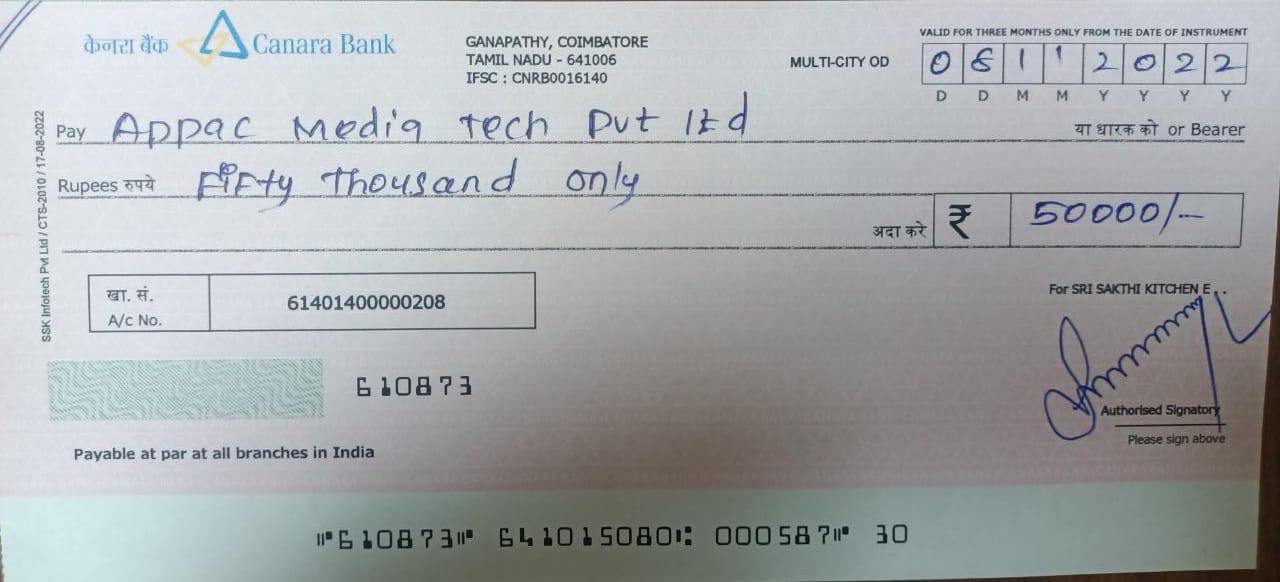 केनरा बैंक Canara Bank
GANAPATHY, COIMBATORE
TAMIL NADU - 641006
IFSC : CNRB0016140
MULTI-CITY OD
VALID FOR THREE MONTHS ONLY FROM THE DATE OF INSTRUMENT
0 8 1 1 2 0 2 2
D D M M Y Y Y Y
Pay Appac Media Tech Pvt ltd या धारक को or Bearer
Rupees रुपये Fifty Thousand only
अदा करे ₹ 50000/-
खा. सं.
A/c No. 61401400000208
For SRI SAKTHI KITCHEN E . .
610873
Authorised Signatory
Please sign above
Payable at par at all branches in India
⑈610873⑈ 641015080⑆ 000587⑈ 30
SSK Infotech Pvt Ltd / CTS-2010 / 17-08-2022